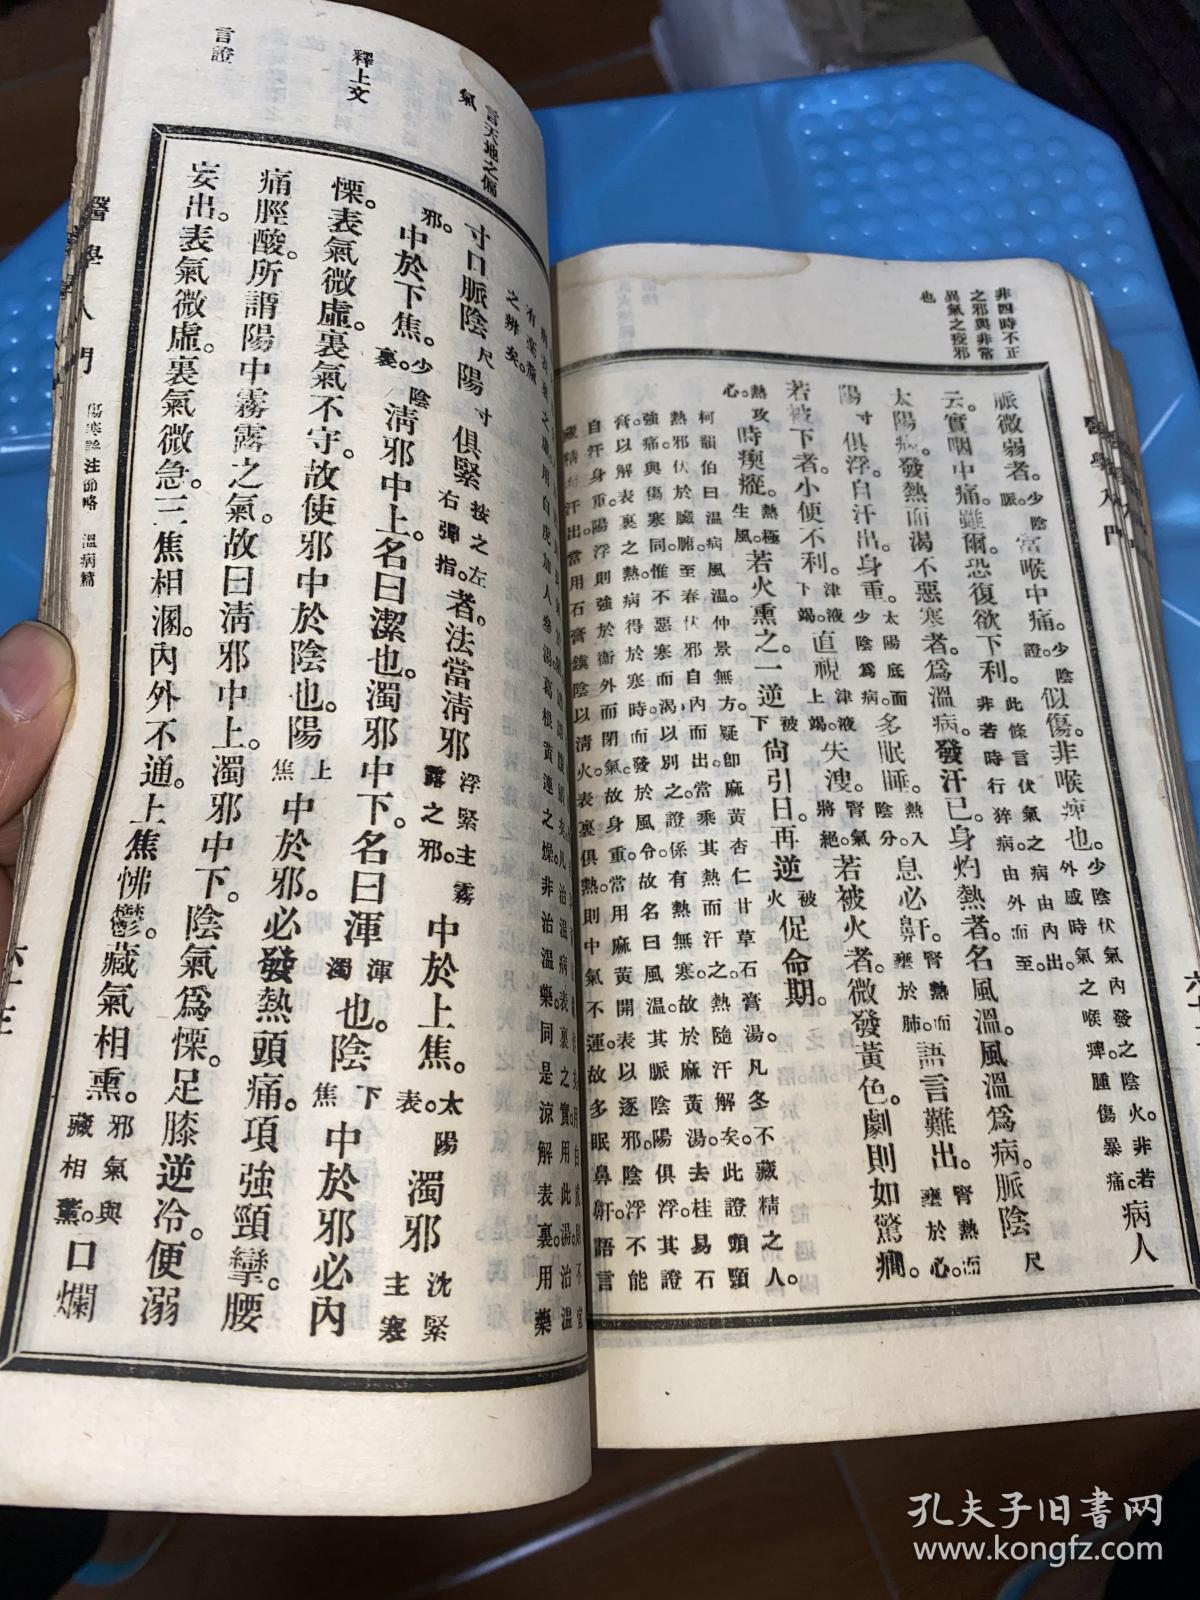 非四時不正
之邪與非常
異氣之疫邪
也
脈微弱者。少陰脈。當喉中痛。少陰證。似傷。非喉痺也。少陰伏氣內發之陰火。非若外感時氣之喉痺。腫傷暴痛。病人
云。實咽中痛。雖爾。恐復欲下利。此條言伏氣之病由內出。非若時行猝病。由外而至。
太陽病。發熱而渴不惡寒者。爲溫病。發汗已。身灼熱者。名風溫。風溫爲病。脈陰尺
陽寸俱浮。自汗出。身重。太陽底面少陰爲病。多眠睡。熱入陰分。息必鼾。腎熱而壅於肺。語言難出。腎熱而壅於心。
若被下者。小便不利。津液下竭。直視。津液上竭。失溲。腎氣將絕。若被火者。微發黃色。劇則如驚癇。
熱攻心。時瘈瘲。熱極生風。若火熏之。一逆被下尙引日。再逆被火促命期。
柯韻伯曰溫病風溫。仲景無方。疑卽麻黃杏仁甘草石膏湯。凡冬不藏精之人。
熱邪伏於臟腑。至春伏邪自內而出。當乘其熱而汗之。熱隨汗解矣。此證頭頸
強痛。與傷寒同。惟不惡寒而渴以別之。證係有熱無寒。故於麻黃湯去桂易石
膏。以解表裏之熱。病得於寒時。而發於風令。故名曰風溫。其脈陰陽俱浮。其證
自汗身重。陽浮則強於衛外而閉氣。故身重。當用麻黃開表以逐邪。陰浮不能
藏精而汗出。當用石膏鎮陰以清火。表裏俱熱。則中氣不運。故多眠鼻鼾。語言
醫學入門
言天地之偏
氣
釋上文
言證
之辨矣。
寸口脈陰尺陽寸俱緊按之左右彈指。者。法當淸邪浮緊主霧露之邪。中於上焦。太陽表。濁邪沈緊主寒
邪。中於下焦。少陰裏。淸邪中上。名曰潔也。濁邪中下。名曰渾渾濁也。陰下焦中於邪。必內
慄。表氣微虛。裏氣不守。故使邪中於陰也。陽上焦中於邪。必發熱頭痛。項強頸攣。腰
痛脛酸。所謂陽中霧露之氣。故曰淸邪中上。濁邪中下。陰氣爲慄。足膝逆冷。便溺
妄出。表氣微虛。裏氣微急。三焦相溷。內外不通。上焦怫鬱。藏氣相熏。邪氣與藏相薰。口爛
醫學入門
溫病篇
孔夫子旧书网
www.kongfz.com